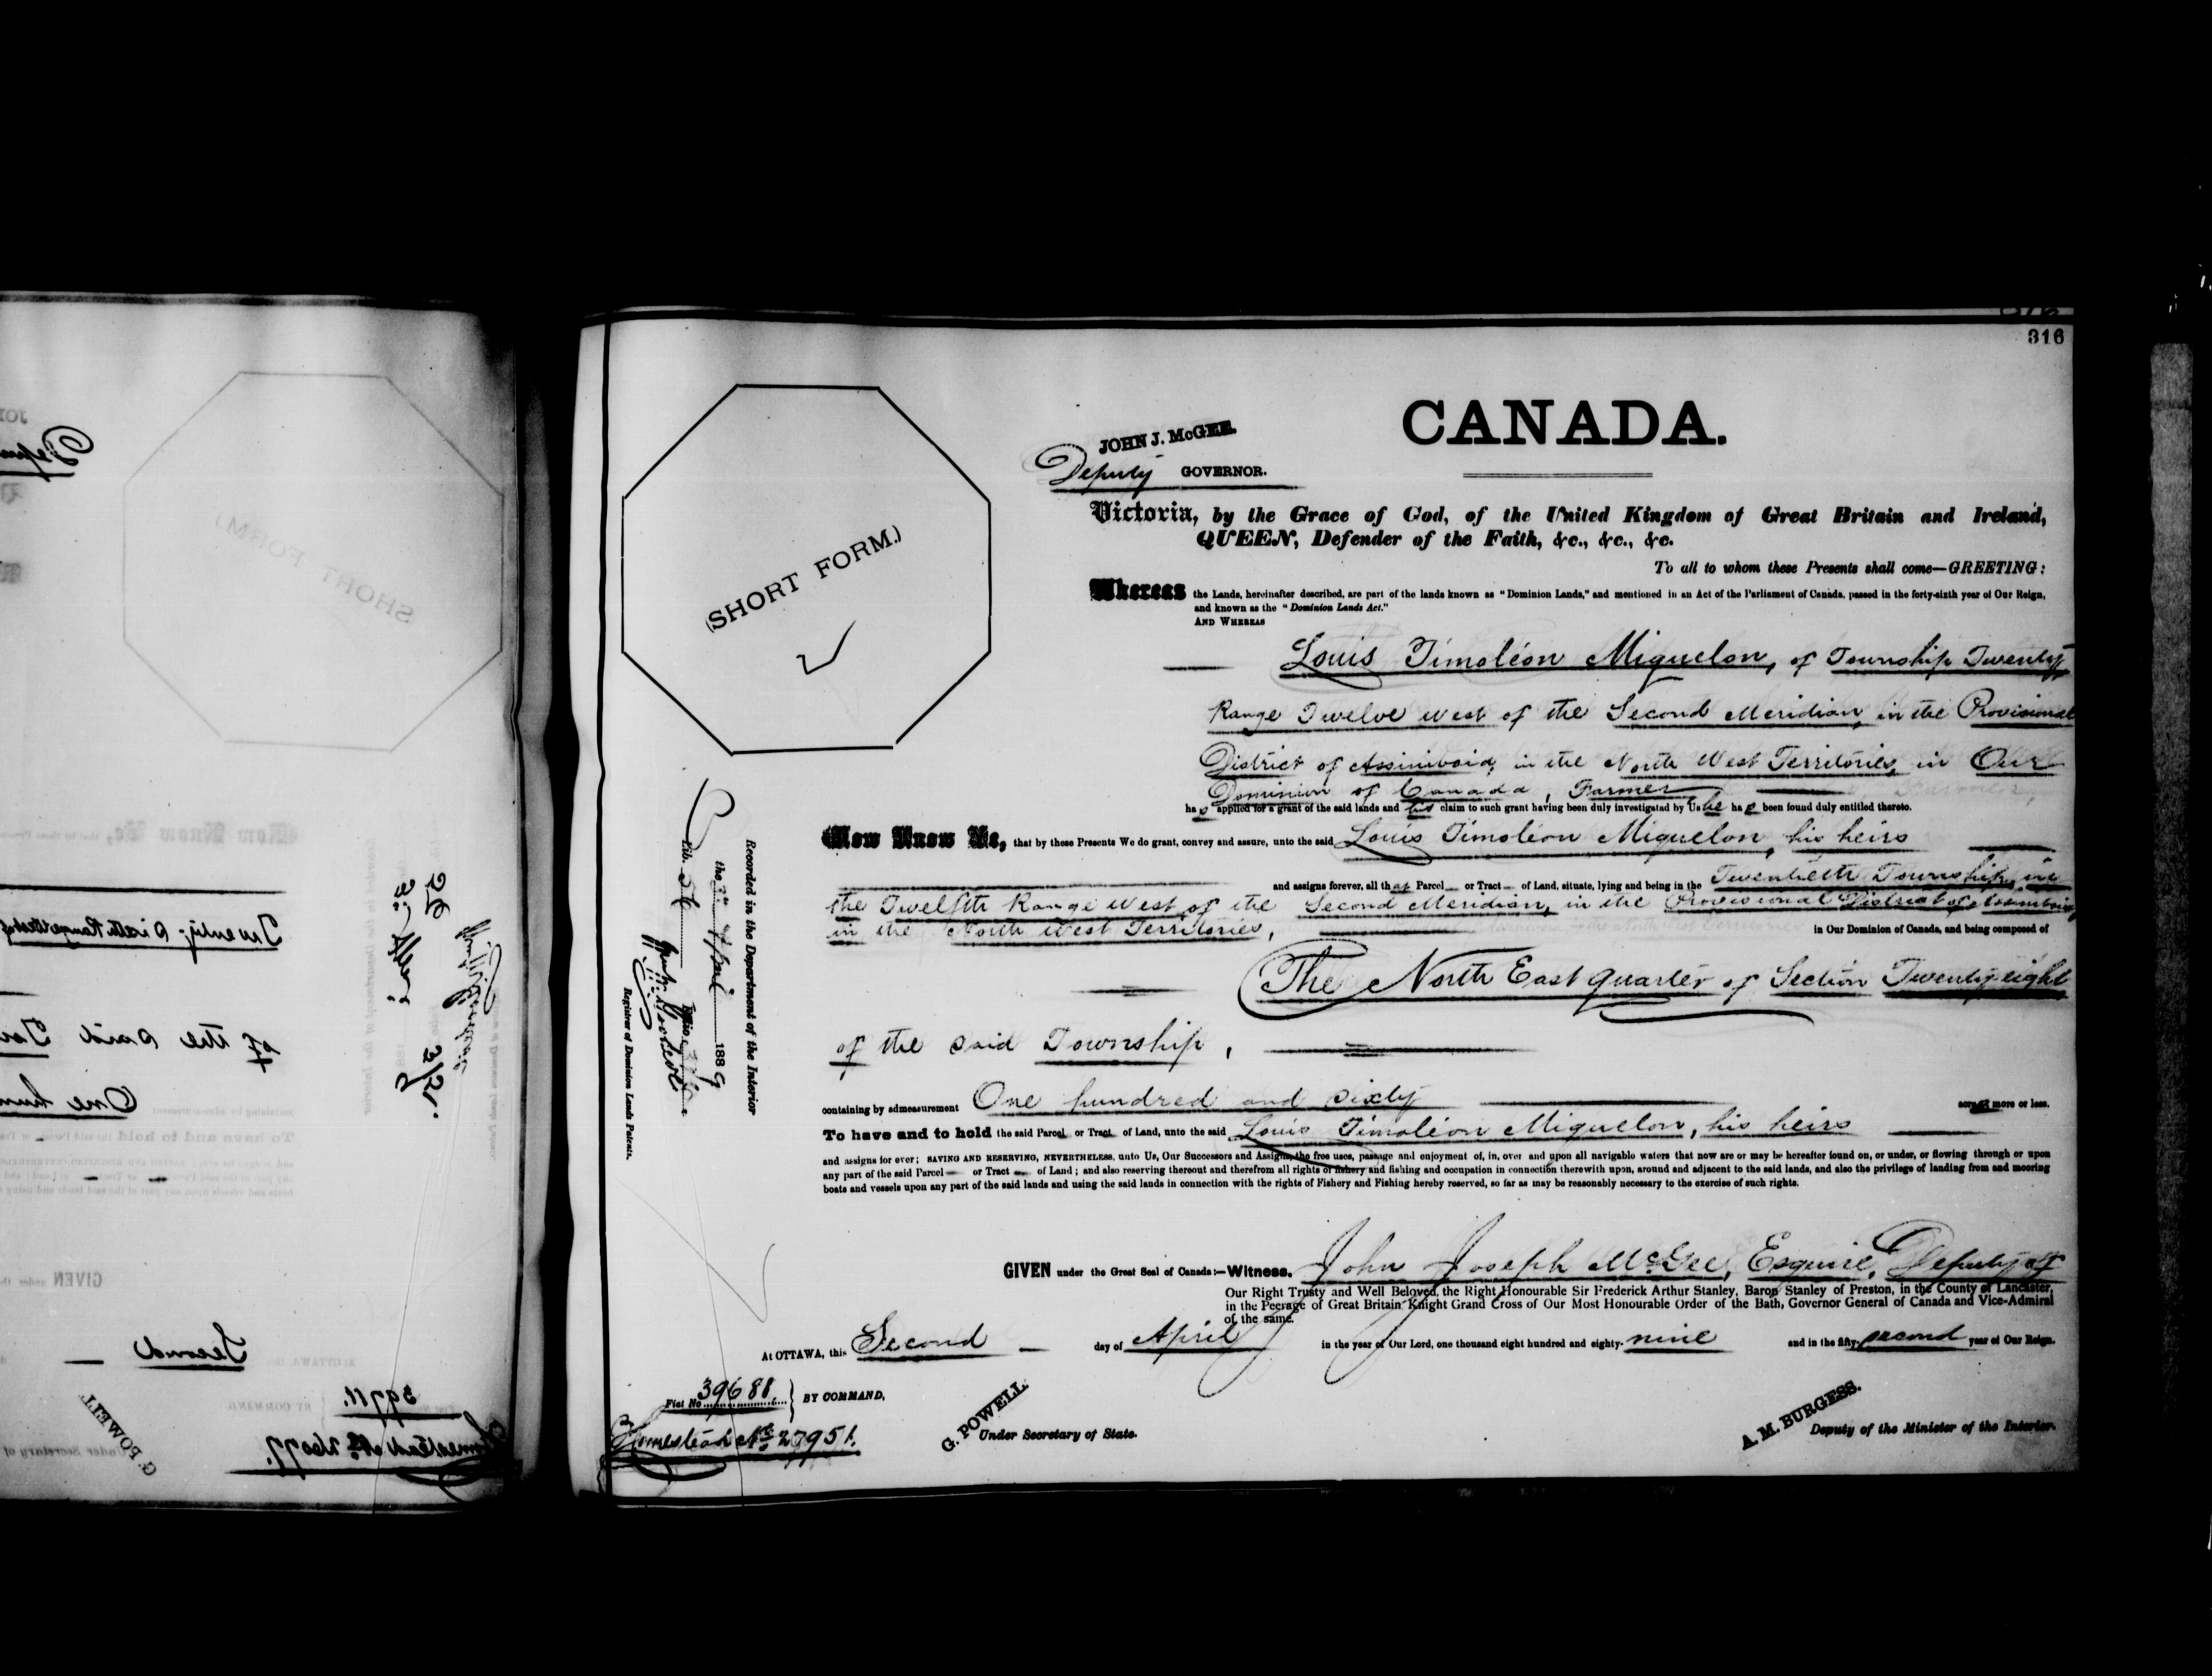 316
CANADA.
JOHN J. McGEE.
Deputy GOVERNOR.
(SHORT FORM.)
Victoria, by the Grace of God, of the United Kingdom of Great Britain and Ireland,
QUEEN, Defender of the Faith, &c., &c., &c.
To all to whom these Presents shall come—GREETING:
Whereas the Lands, hereinafter described, are part of the lands known as "Dominion Lands," and mentioned in an Act of the Parliament of Canada, passed in the forty-sixth year of Our Reign,
and known as the "Dominion Lands Act."
AND WHEREAS
Louis Timoléon Miquelon, of Township Twenty
Range Twelve west of the Second Meridian, in the Provisional
District of Assiniboia, in the North West Territories, in Our
Dominion of Canada, Farmer
has applied for a grant of the said lands and his claim to such grant having been duly investigated by Us he has been found duly entitled thereto.
Now Know Ye, that by these Presents We do grant, convey and assure, unto the said Louis Timoléon Miquelon, his heirs
and assigns forever, all that Parcel or Tract of Land, situate, lying and being in the Twentieth Township, in
the Twelfth Range West of the Second Meridian, in the Provisional District of Assiniboia,
in the North West Territories, in Our Dominion of Canada, and being composed of
The North East quarter of Section Twenty-eight
of the said Township,
containing by admeasurement One hundred and sixty acres more or less.
To have and to hold the said Parcel or Tract of Land, unto the said Louis Timoléon Miquelon, his heirs
and assigns for ever; SAVING AND RESERVING, NEVERTHELESS, unto Us, Our Successors and Assigns, the free uses, passage and enjoyment of, in, over and upon all navigable waters that now are or may be hereafter found on, or under, or flowing through or upon
any part of the said Parcel or Tract of Land; and also reserving thereout and therefrom all rights of fishery and fishing and occupation in connection therewith upon, around and adjacent to the said lands, and also the privilege of landing from and mooring
boats and vessels upon any part of the said lands and using the said lands in connection with the rights of Fishery and Fishing hereby reserved, so far as may be reasonably necessary to the exercise of such rights.
GIVEN under the Great Seal of Canada:—Witness, John Joseph McGee, Esquire, Deputy of
Our Right Trusty and Well Beloved, the Right Honourable Sir Frederick Arthur Stanley, Baron Stanley of Preston, in the County of Lancaster,
in the Peerage of Great Britain, Knight Grand Cross of Our Most Honourable Order of the Bath, Governor General of Canada and Vice-Admiral
of the same.
At OTTAWA, this Second day of April in the year of Our Lord, one thousand eight hundred and eighty-nine and in the fifty-second year of Our Reign.
Fiat No 39688. BY COMMAND,
Homestead No 27951.
G. POWELL
Under Secretary of State.
A. M. BURGESS.
Deputy of the Minister of the Interior.
Recorded in the Department of the Interior
the April 1889
Lib. Folio
Registrar of Dominion Lands Patents.